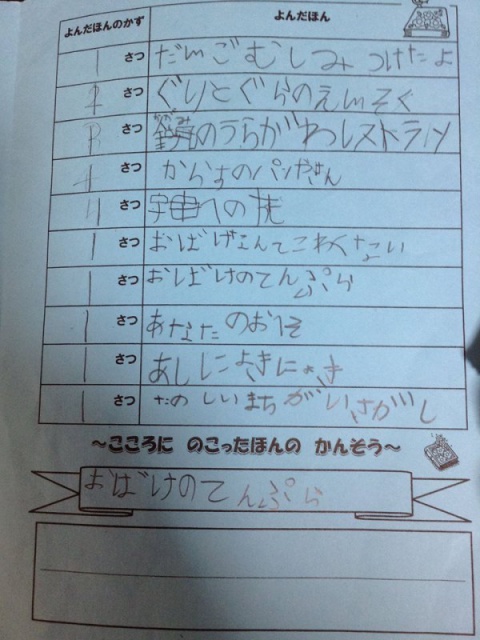 よんだほんのかず よんだほん
1 さつ だんごむしみつけたよ
さつ ぐりとぐらのえんそく
さつ のうらがわレストラン
さつ からすのパンやさん
さつ 宇宙への
1 さつ おばけなんてこわくない
1 さつ おばけのてんぷら
1 さつ あなたのおへそ
1 さつ あしにょきにょき
1 さつ たのしいまちがいさがし
~こころに のこったほんの かんそう~
おばけのてんぷら